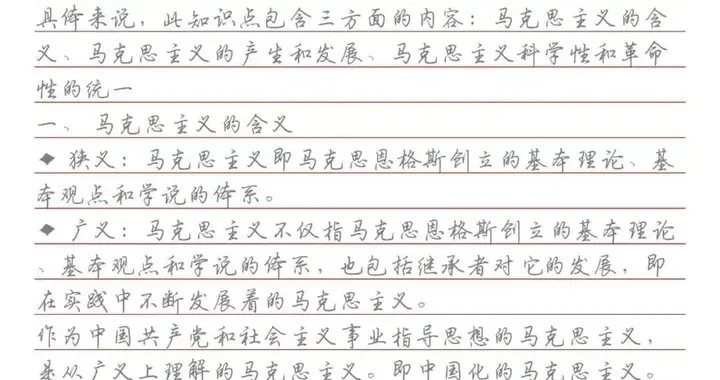 具体来说，此知识点包含三方面的内容：马克思主义的含
义、马克思主义的产生和发展、马克思主义科学性和革命
性的统一
一、马克思主义的含义
◆ 狭义：马克思主义即马克思恩格斯创立的基本理论、基
本观点和学说的体系。
◆ 广义：马克思主义不仅指马克思恩格斯创立的基本理论
、基本观点和学说的体系，也包括继承者对它的发展，即
在实践中不断发展着的马克思主义。
作为中国共产党和社会主义事业指导思想的马克思主义，
是从广义上理解的马克思主义。即中国化的马克思主义。